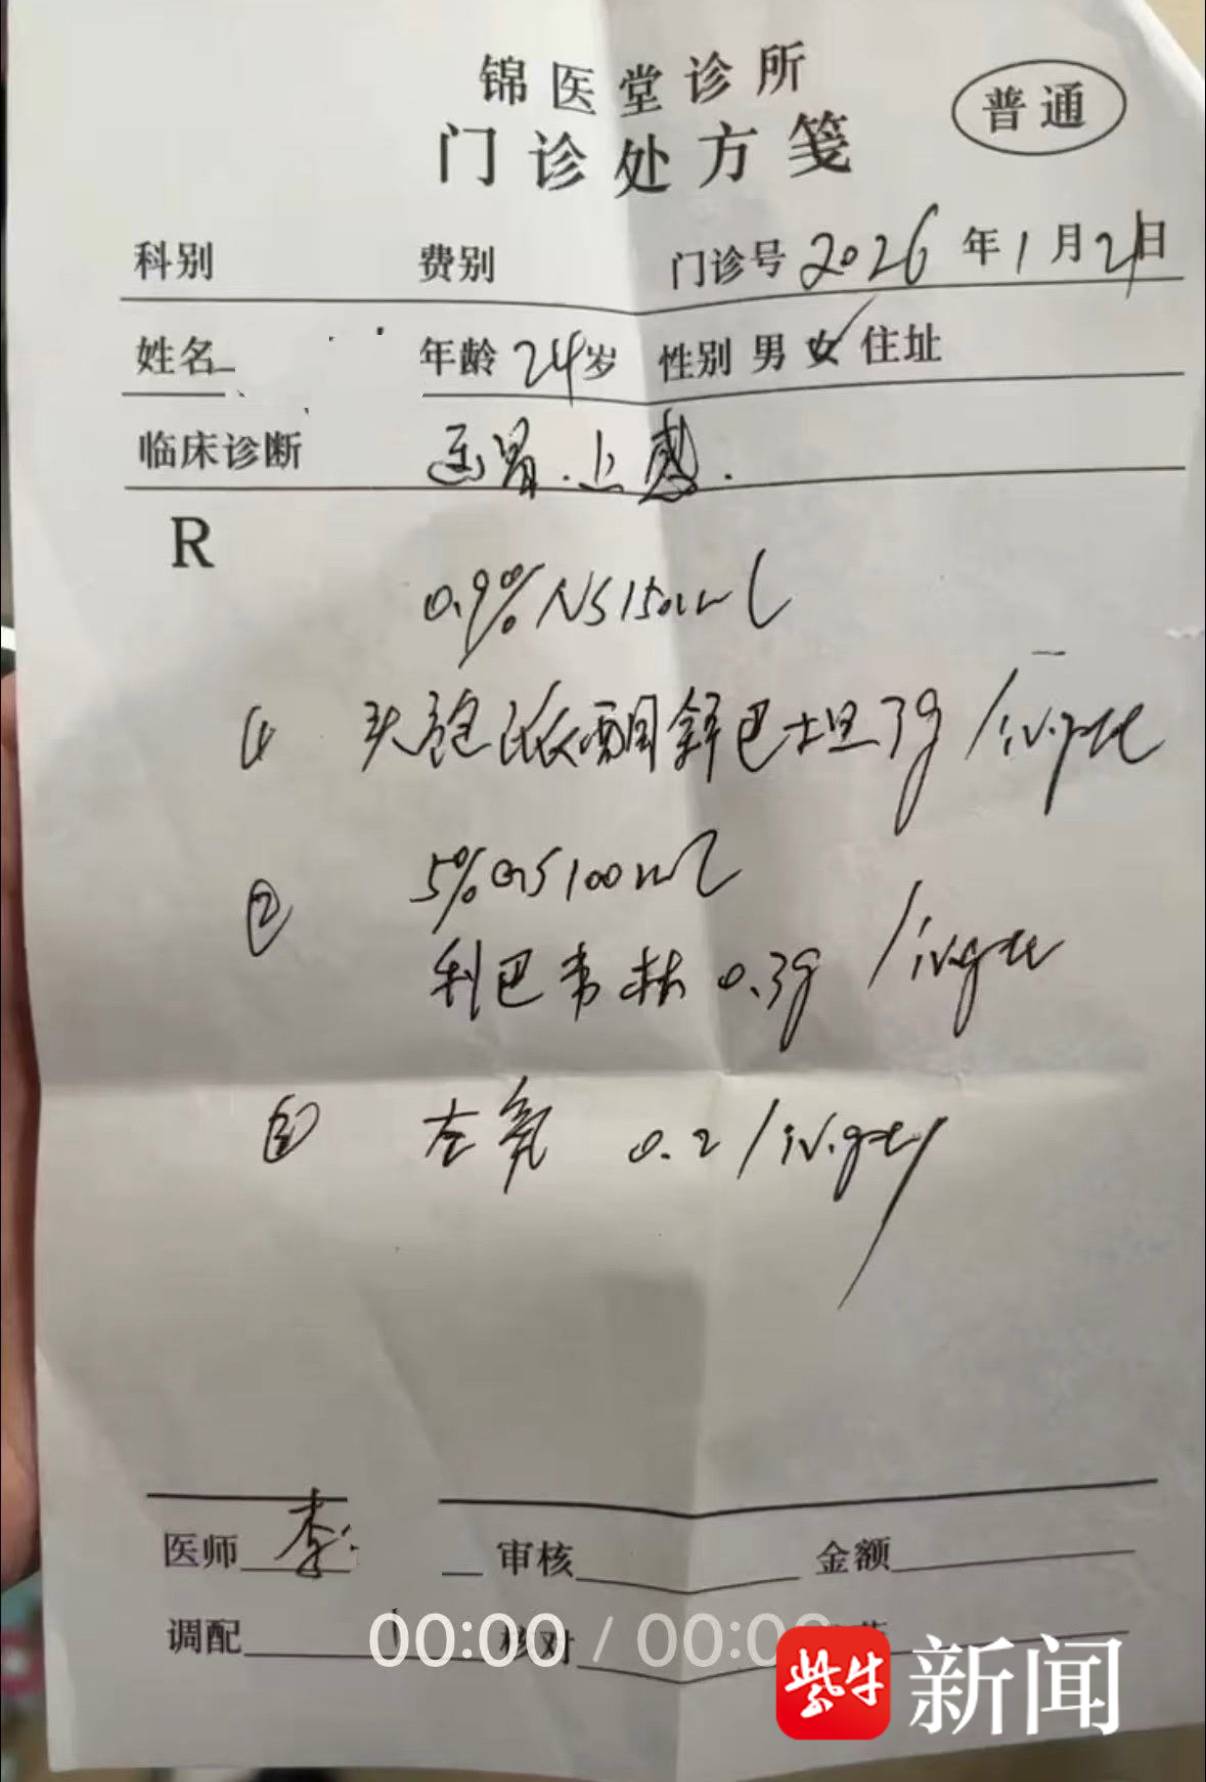 锦医堂诊所
门诊处方笺
普通
科别 费别 门诊号 2026年1月21日
姓名 年龄 24岁 性别 男 女 住址
临床诊断 胃.上感.
R
0.9% NS 150ml
① 头孢哌酮舒巴坦 3g / iv.gtt
5% GS 100ml
② 利巴韦林 0.3g / iv.gtt
③ 左氧 0.2 / iv.gtt
医师 李 审核 金额
调配 核对
00:00 / 00:00
紫牛新闻